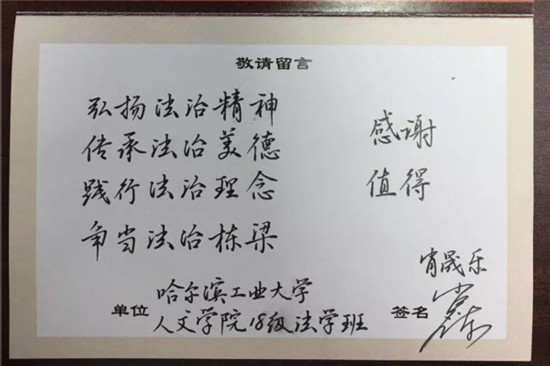 敬请留言
弘扬法治精神
传承法治美德
践行法治理念
争当法治栋梁
感谢
值得
单位
哈尔滨工业大学
人文学院18级法学班
签名
肖晟乐